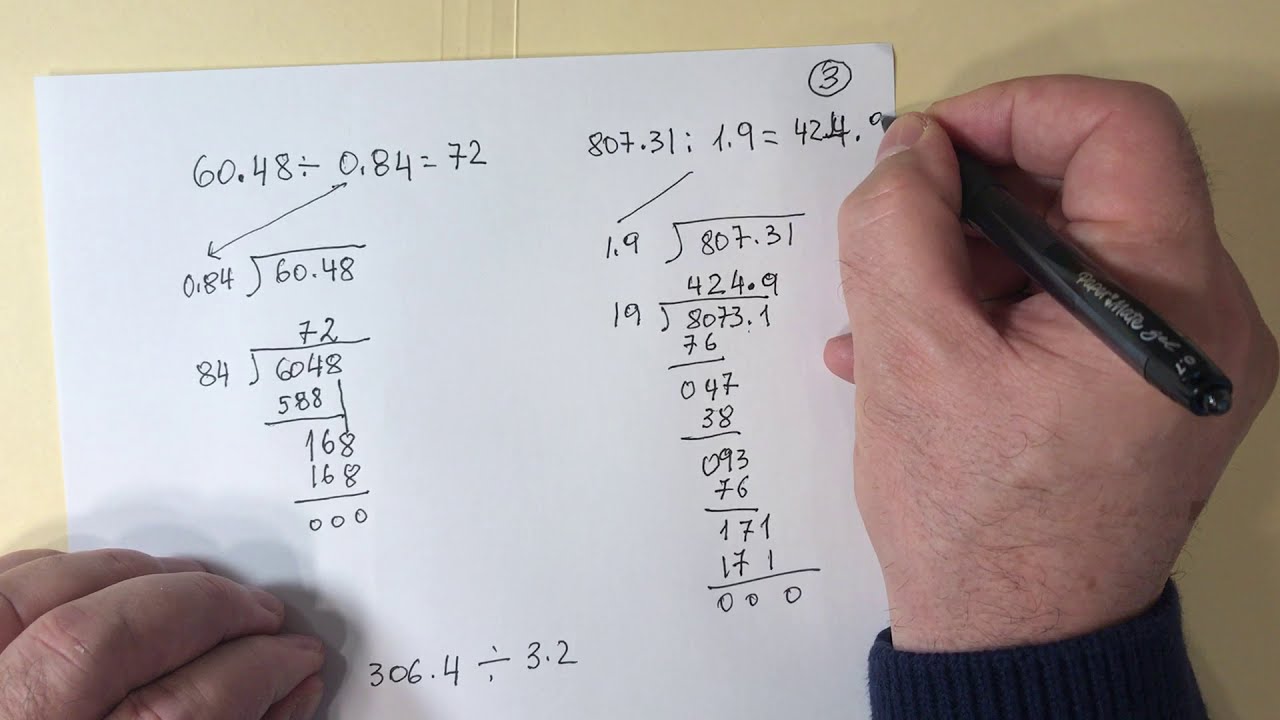 ③
60.48÷ 0.84=72
0.84 ) 60.48
72
84 ) 6048
588
168
168
000
807.31: 1.9= 424.9
1.9 ) 807.31
424.9
19 ) 8073.1
76
047
38
093
76
171
171
000
306.4 ÷ 3.2
PaperMate gel 0.7